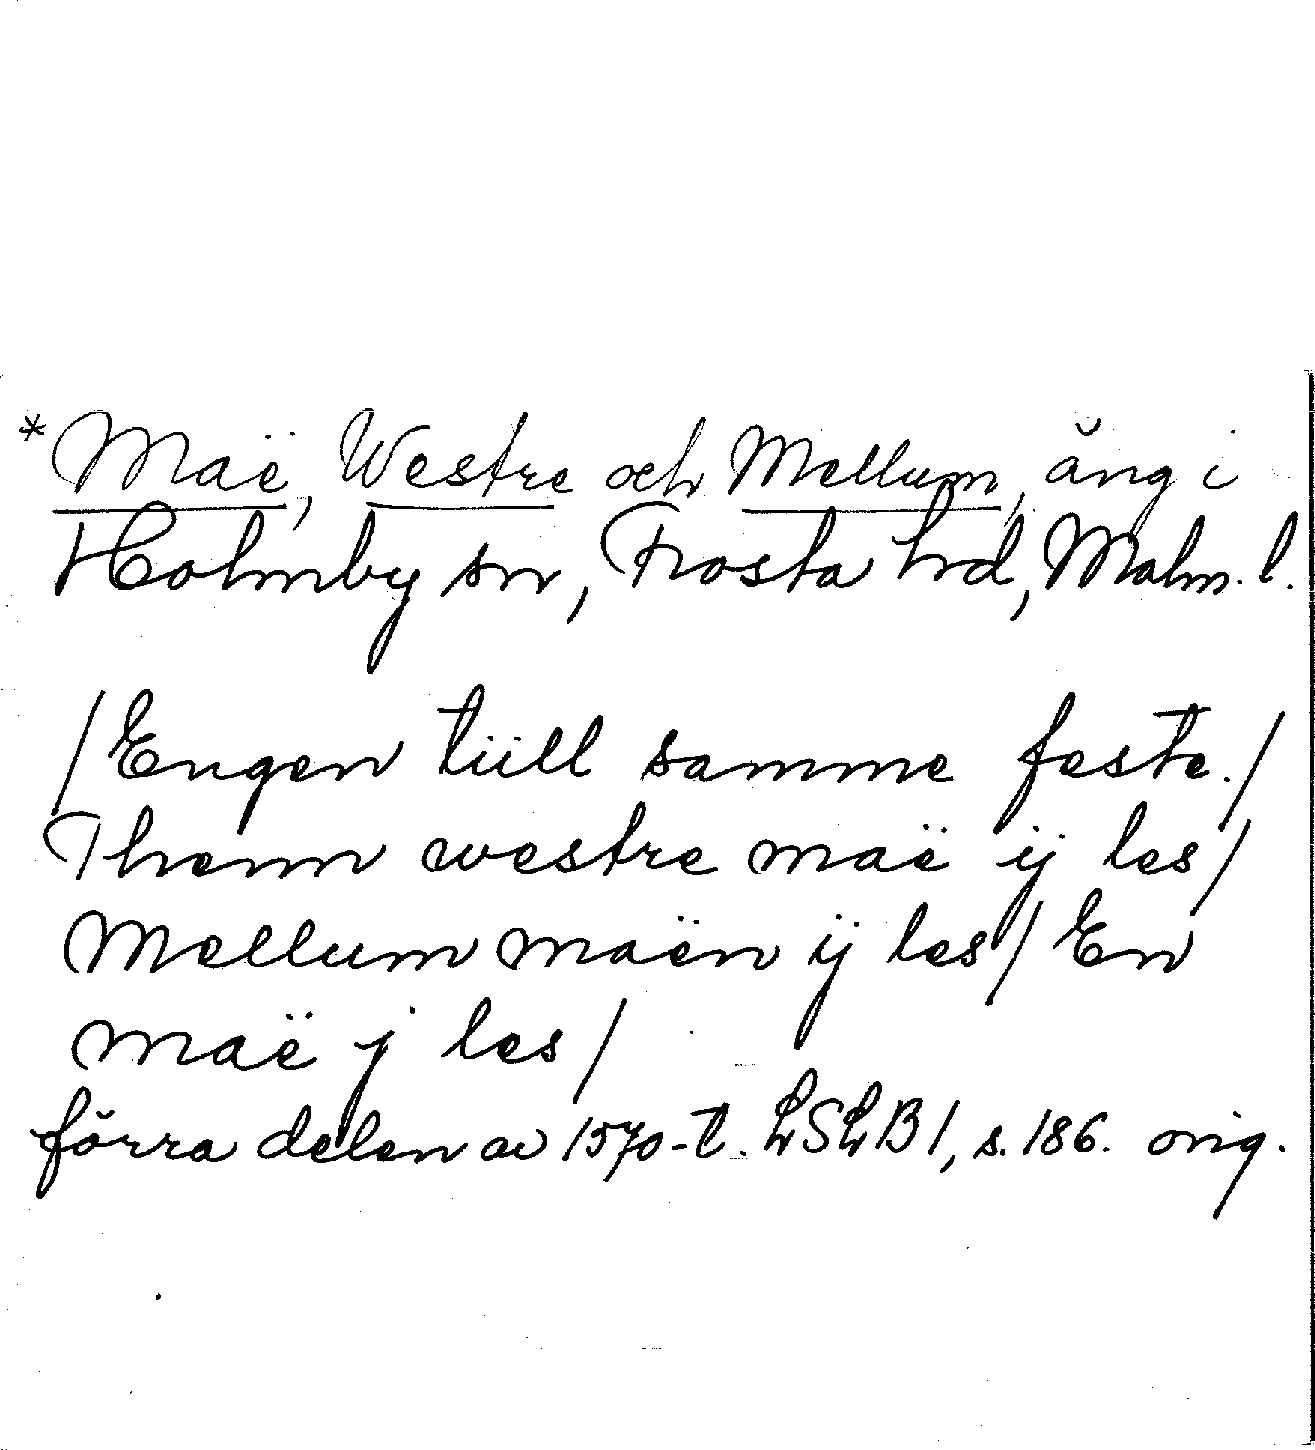 * Maë, Westre och Mellum, äng i
Holmby sn, Frosta hd, Malm. l.
/Engen tüll samme feste./
Thenn westre maë ij les/
Mellum maën ij les/ En
maë j les/
förra delen av 1570-t. LSLB 1, s. 186. orig.